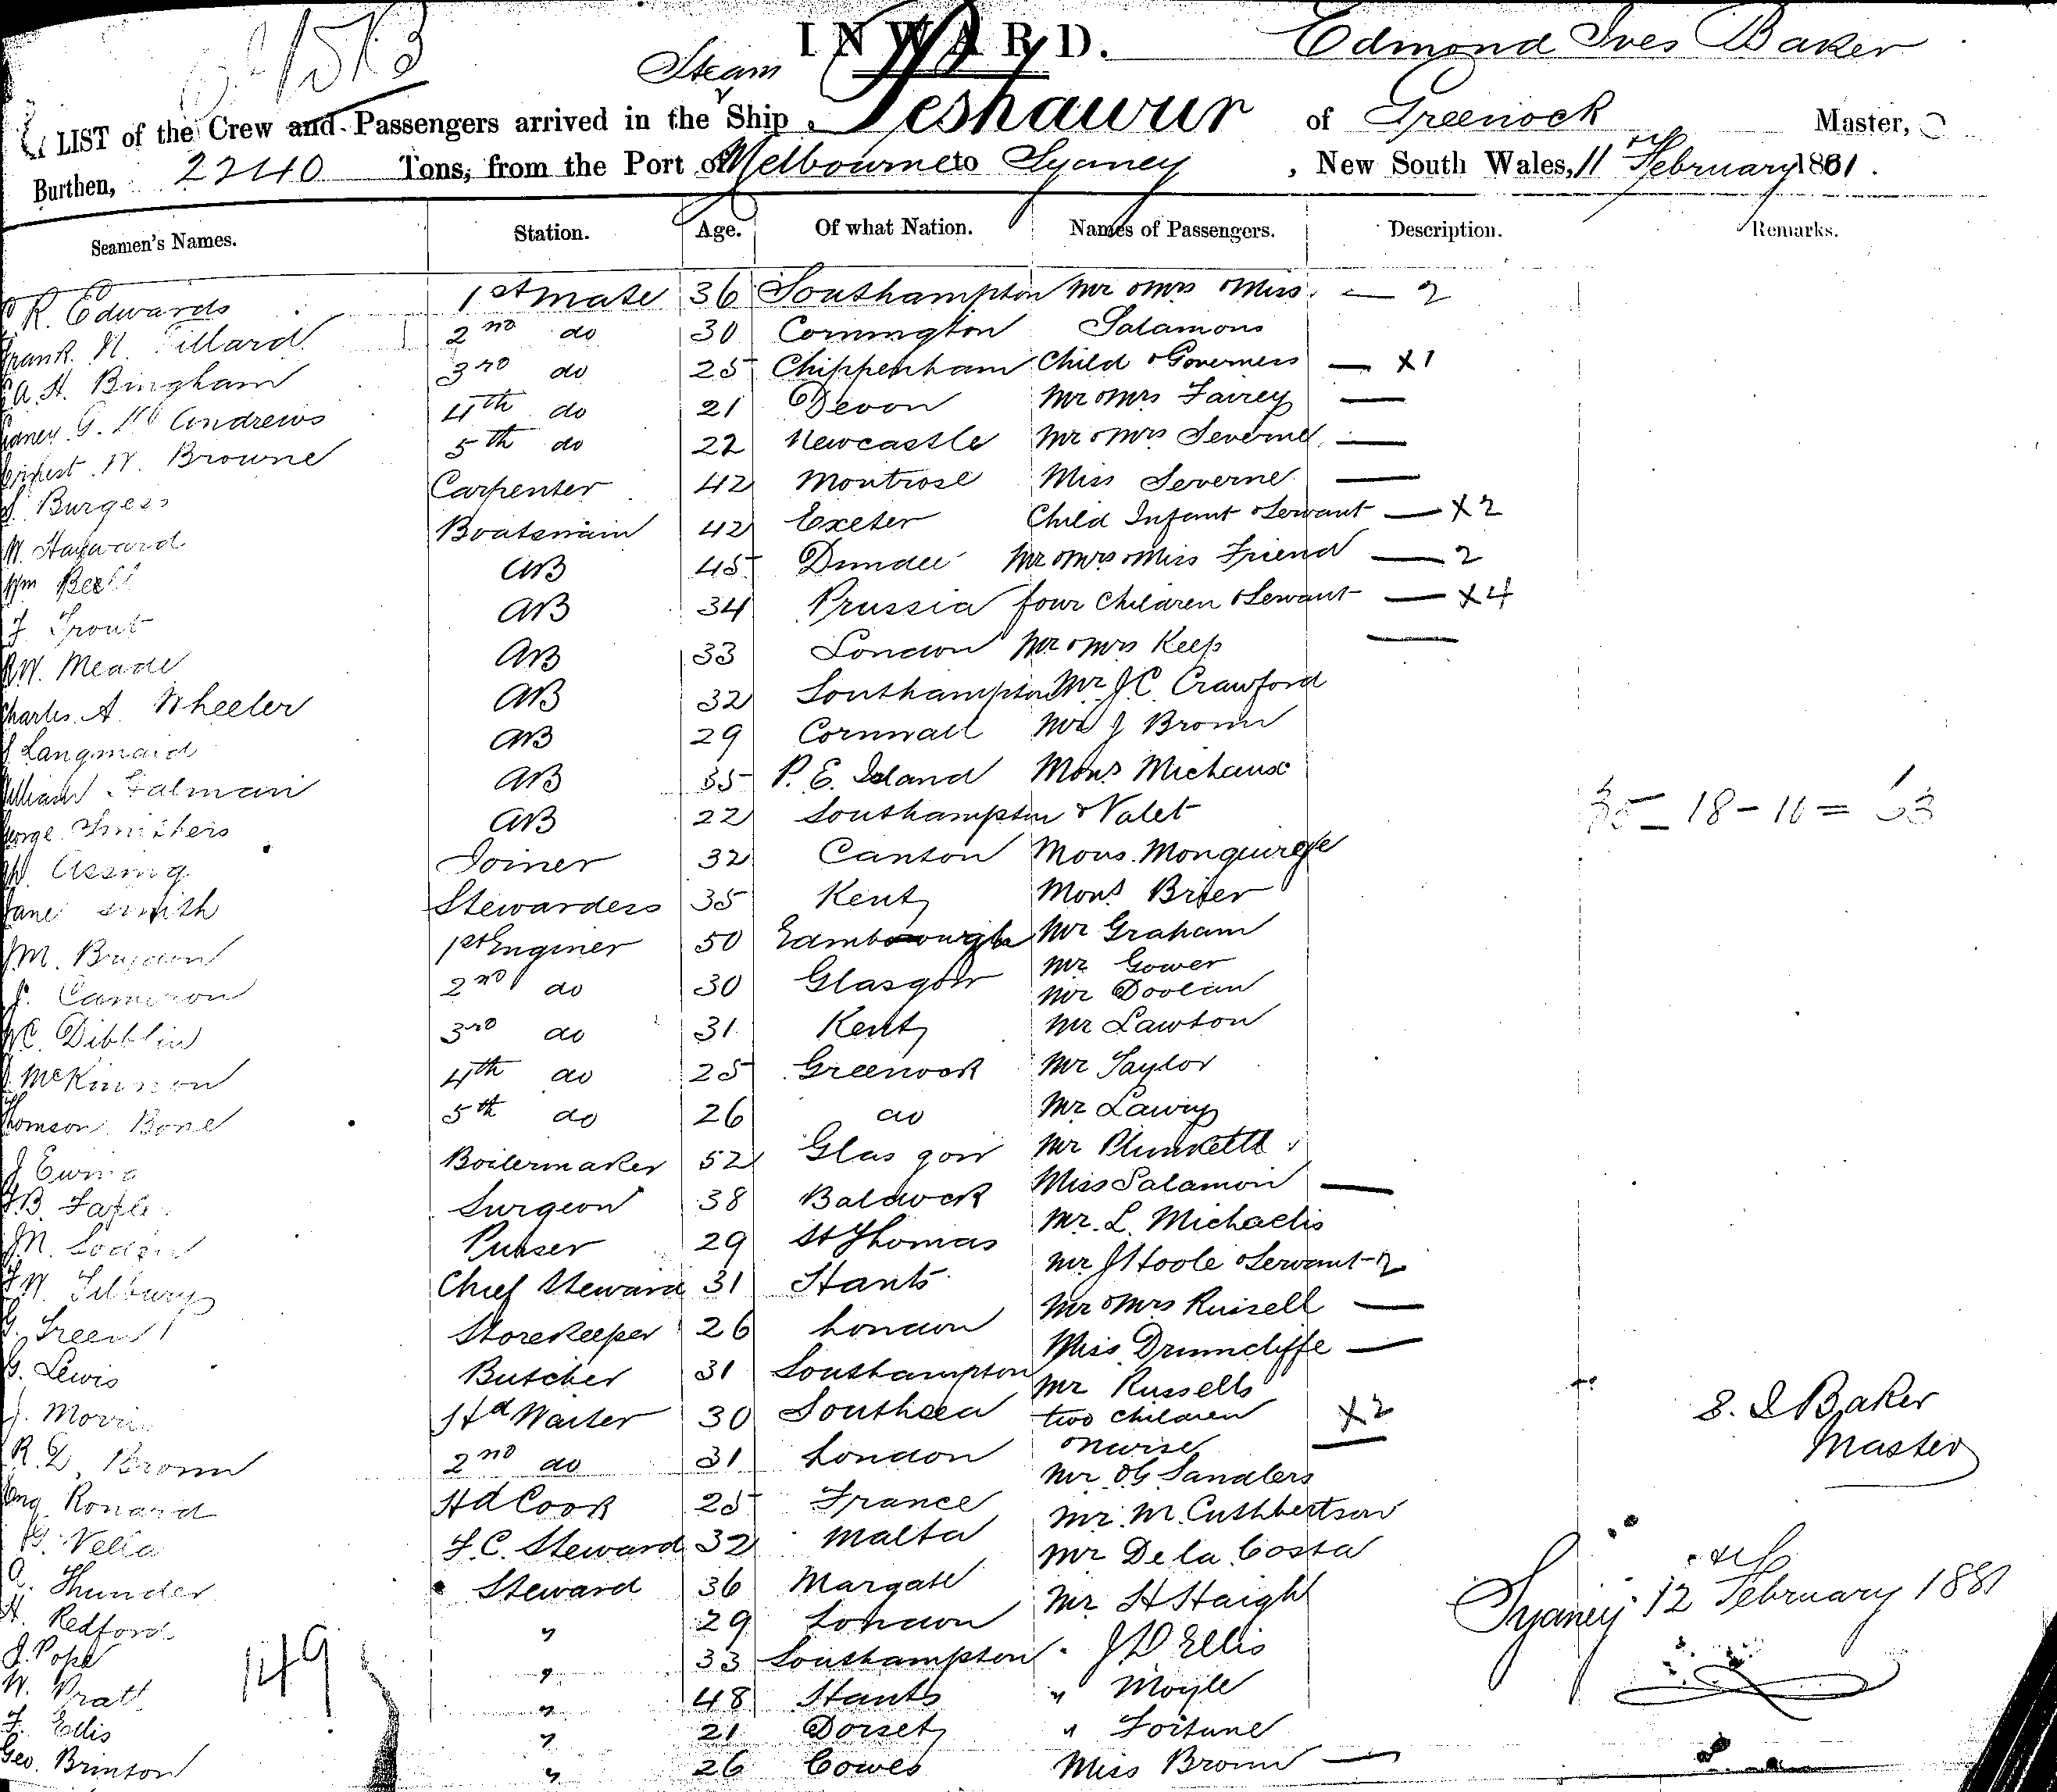 INWARD. Edmond Ives Baker
Steam
LIST of the Crew and Passengers arrived in the Ship Peshawur of Greenock Master,
Burthen, 2240 Tons, from the Port of Melbourne to Sydney, New South Wales, 11th February 1881.
Seamen's Names. Station. Age. Of what Nation. Names of Passengers. Description. Remarks.
R. Edwards 1st Mate 36 Southampton Mr & Mrs & Miss — 2
Frank N. Tillard 2nd do 30 Salamons
A. H. Bingham 3rd do 25 Chippenham Child & Governess — X1
G. Andrews 4th do 21 Devon Mr & Mrs Fairey —
W. Browne 5th do 22 Newcastle Mr & Mrs Severne —
Burgess Carpenter 42 Montrose Miss Severne —
W. Hayward Boatswain 42 Exeter Child Infant & Servant — X2
Wm AB 45 Dundee Mr & Mrs & Miss Friend — 2
Trout AB 34 Prussia four Children & Servant — X4
W. Meade AB 33 London Mr & Mrs Keep —
Charles A. Wheeler AB 32 Southampton Mr J. C. Crawford
Langmaid AB 29 Cornwall Mr J Brown
William AB 35 P. E. Island Mons Michaux
George Smithers AB 22 Southampton & Valet
Joiner 32 Canton Mons.
Jane Smith Stewardess 35 Kent Mons Brier
M. 1st Enginer 50 Mr Graham
Cameron 2nd do 30 Glasgow Mr Gower
Mr Doolan
C. Dibblin 3rd do 31 Kent Mr Lawton
McKinnon 4th do 25 Greenock Mr Taylor
Thomson Bone 5th do 26 do Mr
J Ewing Boilermaker 52 Glasgow Mr Plunkett
B. Surgeon 38 Baldock Miss Salamon —
Purser 29 St Thomas Mr. L. Michaelis
W. Tilbury Chief Steward 31 Hants Mr J Hoole & Servant - 2
G. Green Storekeeper 26 London Mr & Mrs Russell —
G. Lewis Butcher 31 Southampton Miss Drumcliffe —
Mr Russells
J. Morris Hd Waiter 30 Southsea two Children X2
& Nurse —
R. Brown 2nd do 31 London Mr Sanders
Ronard Hd Cook 25 France Mr. M. Cuthbertson
Vella F. C. Steward 32 Malta Mr De la Costa
Thunder Steward 36 Margate Mr H Haigh
H. Redford " 29 London
J. Pope " 33 Southampton " J D Ellis
W. Pratt " 48 Hants " Moyle
F. Ellis " 21 Dorset " Fortune
Geo. Brinton " 26 Cowes Miss Brown —
149
E. I Baker
Master
Sydney 12th February 1881